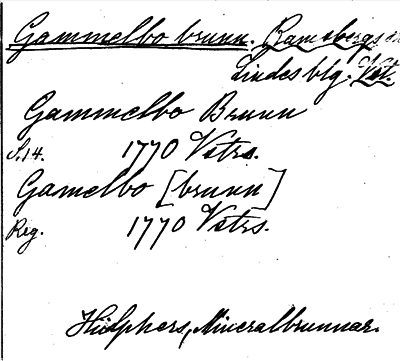 Gammelbo brunn. Ramsbergs
Lindesblg. Vst.
Gammelbo Brunn
S.14. 1770 Vstrs.
Gamelbo [brunn]
Reg. 1770 Vstrs.
Hülphers, Mineralbrunnar.